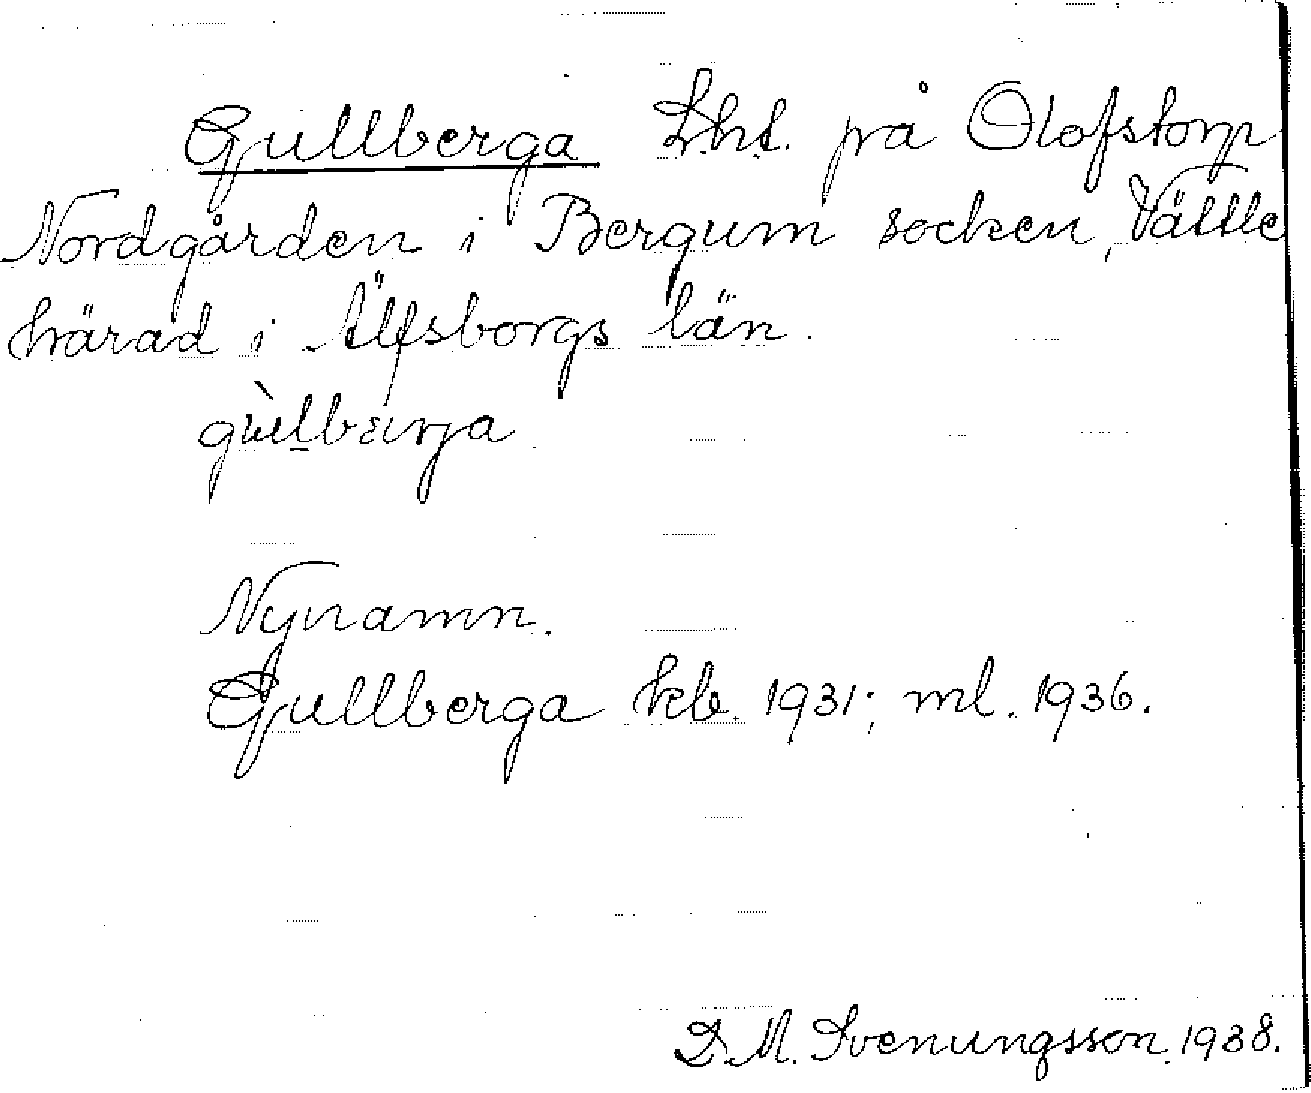 Gullberga Lht. på Olofstorp
Nordgården i Bergum socken, Vättle
härad i Älfsborgs län.
gùlbærja
Nynamn.
Gullberga kb. 1931; ml. 1936.
D. M. Svenungsson 1938.